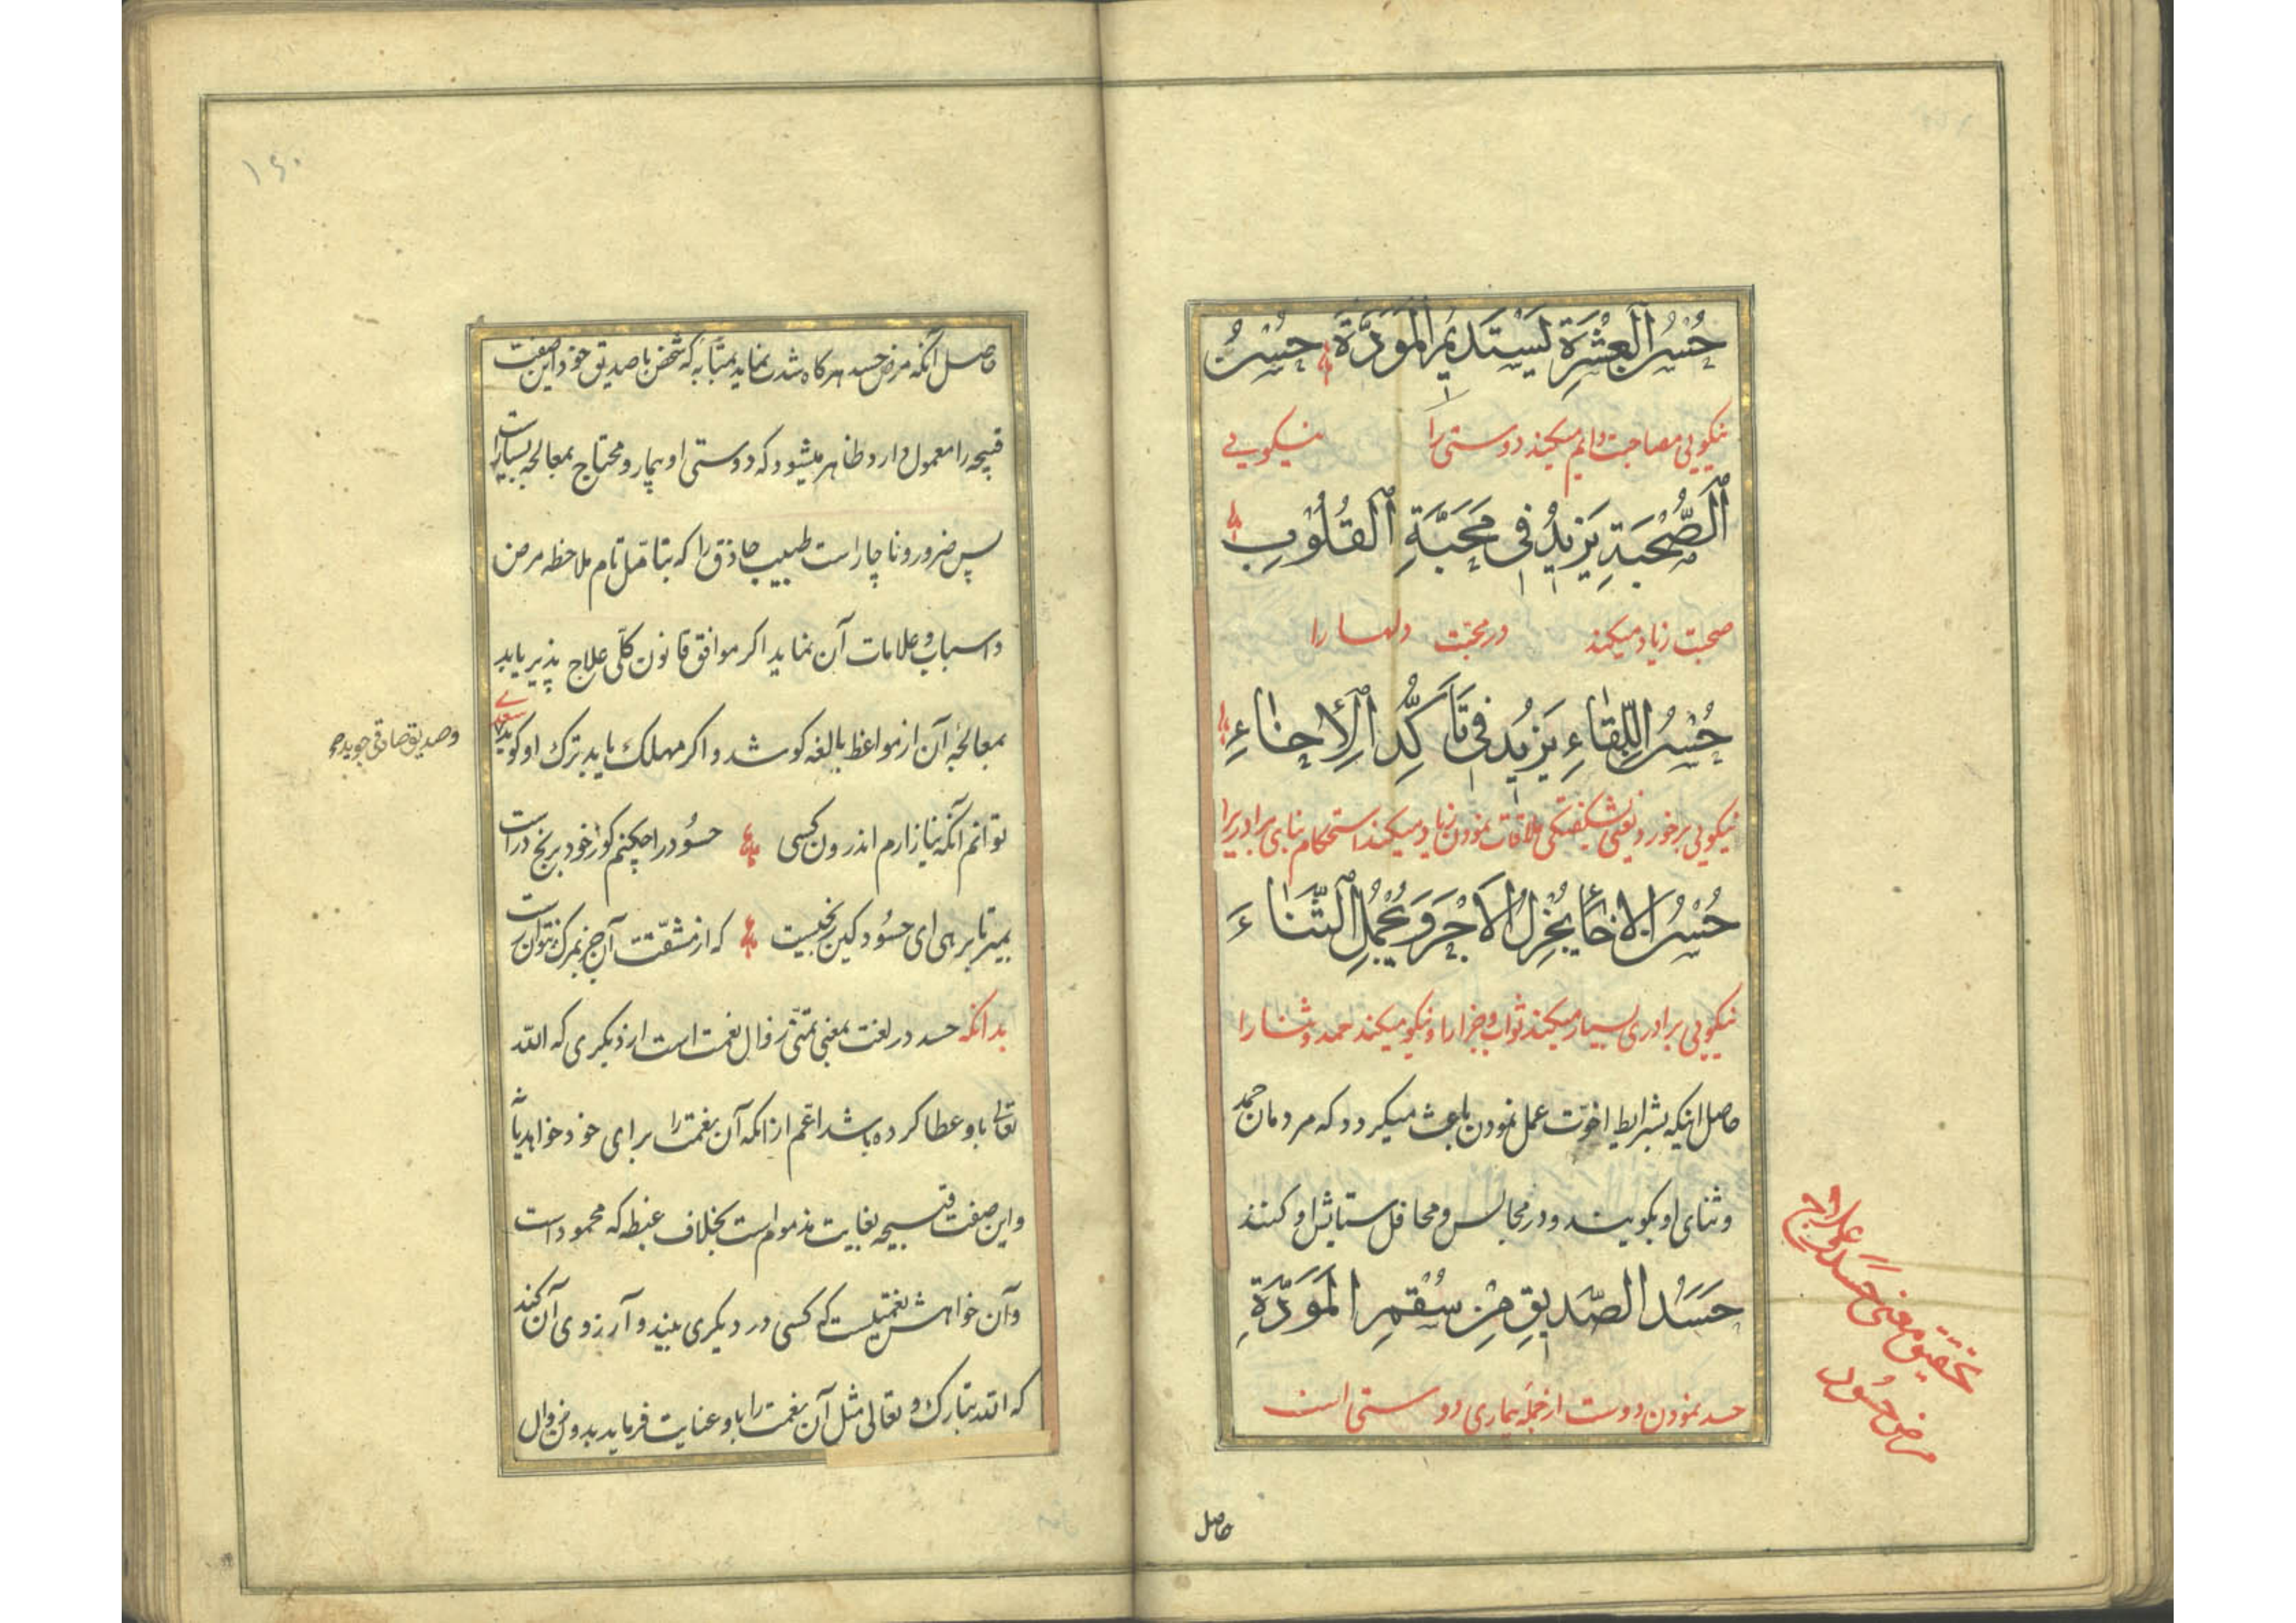 حُسْنُ الْعِشْرَةِ يَسْتَدِيمُ الْمَوَدَّةَ حُسْنُ
نیکویی مصاحبت دایم میکند دوستی را نیکویی
الصُّحْبَةِ يَزِيدُ فِى مَحَبَّةِ الْقُلُوبِ
صحبت زیاد میکند در محبّت دلها را
حُسْنُ اللِّقَاءِ يَزِيدُ فِى تَأَكُّدِ الْإِخَاءِ
نیکویی برخورد یعنی بشکفتکی ملاقات نمودن زیاد میکند استحکام بنای برادریرا
حُسْنُ الْاخَاءِ يُجْزِلُ الْاَجْرَ وَيُجْمِلُ الثَّنَاءَ
نیکویی برادری بسیار میکند ثواب و جزا را و نیکو میکند حمد و ثنا را
حاصل اینکه بشرایط اخوّت عمل نمودن باعث میکردد که مردمان حمد
و ثنای او بکویند و در مجالس و محافل ستایش او کنند
حَسَدُ الصَّدِيقِ مِنْ سُقْمِ الْمَوَدَّةِ
حسد نمودن دوست از جملهٔ بیماری دوستی است
تحقیق معنی حسد و علاج
مرض حسود
حاصل
۱۶۰
حاصل آنکه مرض حسد هرکاه شدت نماید بمثابهٔ که شخص با صدیق خود این صفت
قبیحه را معمول دارد ظاهر میشود که دوستی او بیمار و محتاج بمعالجهٔ بسیار است
پس ضرور و ناچار است طبیب حاذق را که بتامّل تام ملاحظه مرض
و اسباب و علامات آن نماید اکر موافق قانون کلّی علاج پذیر یابد
بمعالجهٔ آن از مواعظ بالغه کوشد و اکر مهلک یابد بترک او کوید سعدی
و صدیق صادقی جوید صح
توانم آنکه نیازارم اندرون کسی حسُود را چکنم کو ز خود برنج در است
بمیر تا برهی ای حسُود کین رنجیست که از مشقّت آن جز بمرک نتوان رست
بدانکه حسد در لغت بمعنی تمنّی زوال نعمت است از دیکری که الله
تعالی باو عطا کرده باشد اعّم از انکه آن نعمت را برای خود خواهد یا نه
و این صفت قبیحه بغایت مذموم است بخلاف غبطه که محمود است
و آن خواهش نعمتیست که کسی در دیکری بیند و آرزوی آن کند
که الله تبارک و تعالی مثل آن نعمت را باو عنایت فرماید بدون زوال